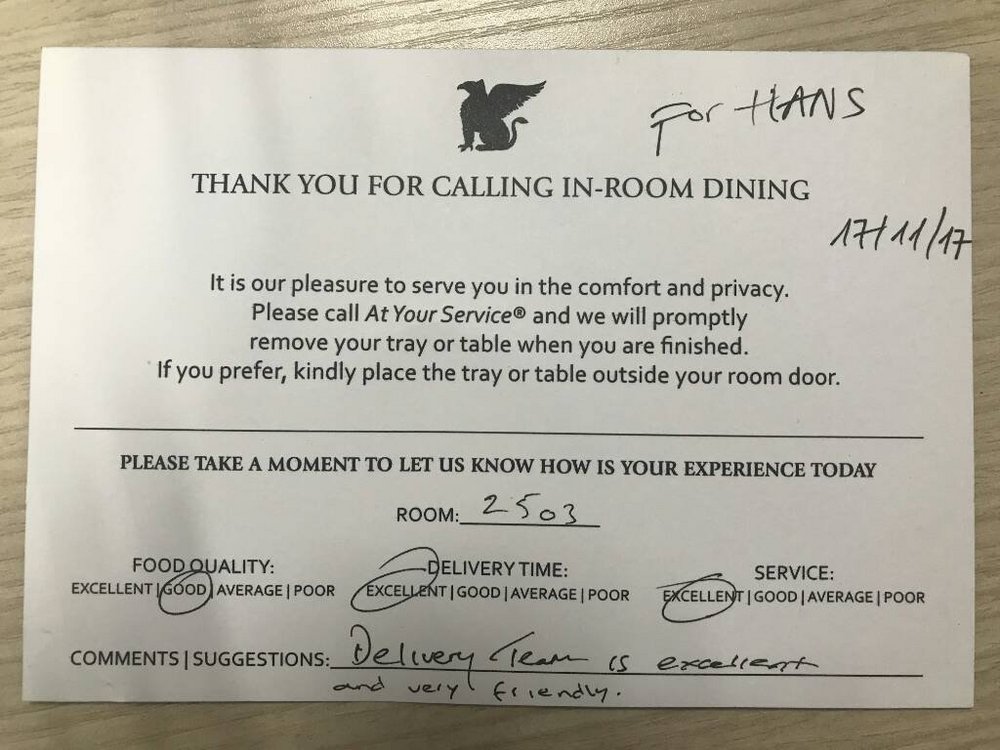 For HANS
THANK YOU FOR CALLING IN-ROOM DINING
17/11/17
It is our pleasure to serve you in the comfort and privacy.
Please call At Your Service® and we will promptly
remove your tray or table when you are finished.
If you prefer, kindly place the tray or table outside your room door.
PLEASE TAKE A MOMENT TO LET US KNOW HOW IS YOUR EXPERIENCE TODAY
ROOM: 2503
FOOD QUALITY:
EXCELLENT | GOOD | AVERAGE | POOR
DELIVERY TIME:
EXCELLENT | GOOD | AVERAGE | POOR
SERVICE:
EXCELLENT | GOOD | AVERAGE | POOR
COMMENTS | SUGGESTIONS: Delivery Team is excellent
and very friendly.